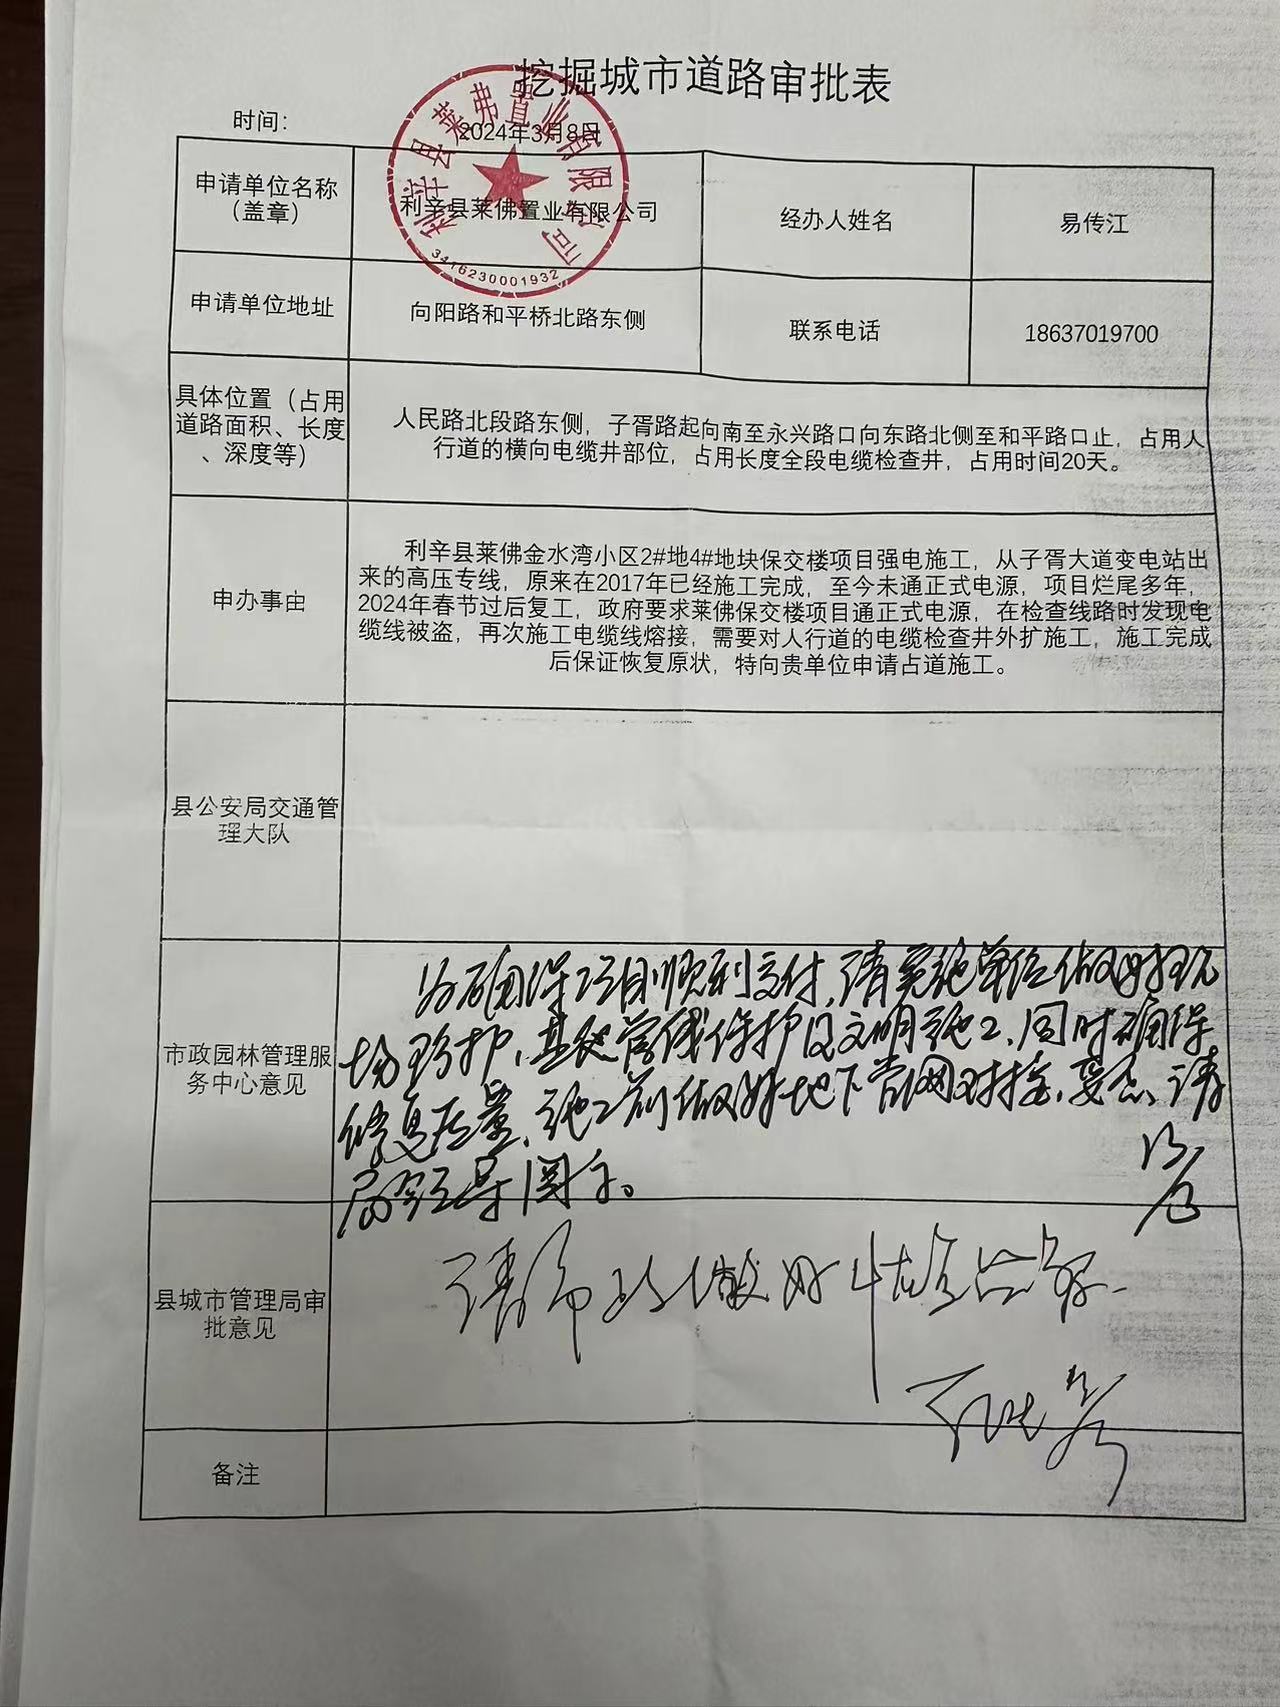 挖掘城市道路审批表
时间：
2024年3月8日
利辛县莱弗置业有限公司
3416230001932
申请单位名称
（盖章）
利辛县莱佛置业有限公司
经办人姓名
易传江
申请单位地址
向阳路和平桥北路东侧
联系电话
18637019700
具体位置（占用
道路面积、长度
、深度等）
人民路北段路东侧，子胥路起向南至永兴路口向东路北侧至和平路口止，占用人
行道的横向电缆井部位，占用长度全段电缆检查井，占用时间20天。
申办事由
利辛县莱佛金水湾小区2#地4#地块保交楼项目强电施工，从子胥大道变电站出
来的高压专线，原来在2017年已经施工完成，至今未通正式电源，项目烂尾多年，
2024年春节过后复工，政府要求莱佛保交楼项目通正式电源，在检查线路时发现电
缆线被盗，再次施工电缆线熔接，需要对人行道的电缆检查井外扩施工，施工完成
后保证恢复原状，特向贵单位申请占道施工。
县公安局交通管
理大队
市政园林管理服
务中心意见
为确保项目顺利交付，请实施单位做好现
场防护、基础管线保护及文明施工，同时确保
修复质量，施工前做好地下管网对接，妥否，请
局领导阅示。
县城市管理局审
批意见
请市政做好
备注